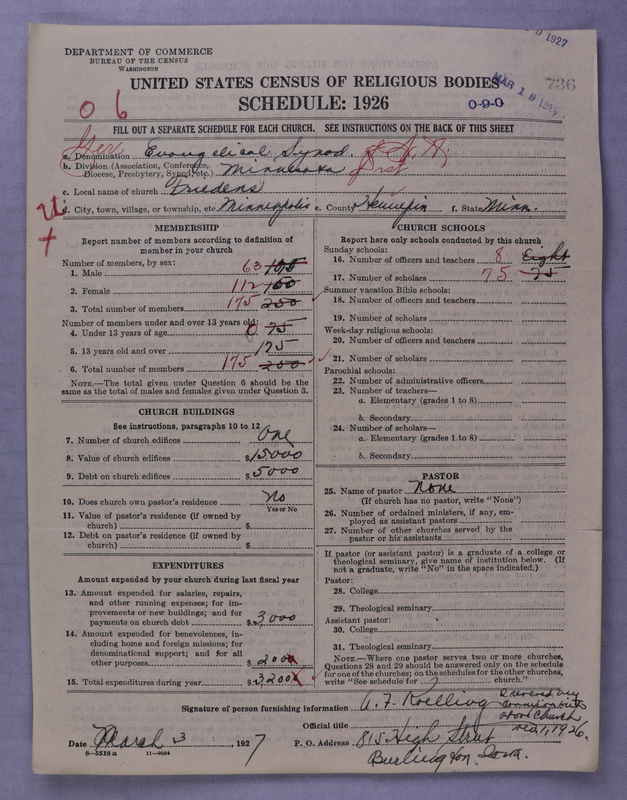 DEPARTMENT OF COMMERCE
BUREAU OF THE CENSUS
WASHINGTON
1927
MAR 18 1927
736
UNITED STATES CENSUS OF RELIGIOUS BODIES
SCHEDULE: 1926
0 6
0-9-0
FILL OUT A SEPARATE SCHEDULE FOR EACH CHURCH. SEE INSTRUCTIONS ON THE BACK OF THIS SHEET
Ger
a. Denomination Evangelical Synod
b. Division (Association, Conference, Diocese, Presbytery, Synod, etc.) Minnesota
c. Local name of church Friedens
d. City, town, village, or township, etc Minneapolis e. County Hennepin f. State Minn.
MEMBERSHIP
Report number of members according to definition of
member in your church
Number of members, by sex:
1. Male 63
2. Female 112 150
3. Total number of members 175 250
Number of members under and over 13 years old:
4. Under 13 years of age 75
5. 13 years old and over 175
6. Total number of members 175 250
NOTE.—The total given under Question 6 should be
same as the total of males and females given under Question 3.
CHURCH BUILDINGS
See instructions, paragraphs 10 to 12
7. Number of church edifices One
8. Value of church edifices $15000
9. Debt on church edifices $5000
10. Does church own pastor's residence No
Yes or No
11. Value of pastor's residence (if owned by
church) $
12. Debt on pastor's residence (if owned by
church) $
EXPENDITURES
Amount expended by your church during last fiscal year
13. Amount expended for salaries, repairs,
and other running expenses; for im-
provements or new buildings; and for
payments on church debt $3,000
14. Amount expended for benevolences, in-
cluding home and foreign missions; for
denominational support; and for all
other purposes $
15. Total expenditures during year $
CHURCH SCHOOLS
Report here only schools conducted by this church
Sunday schools:
16. Number of officers and teachers 8 Eight
17. Number of scholars 75 75
Summer vacation Bible schools:
18. Number of officers and teachers
19. Number of scholars
Week-day religious schools:
20. Number of officers and teachers
21. Number of scholars
Parochial schools:
22. Number of administrative officers
23. Number of teachers—
a. Elementary (grades 1 to 8)
b. Secondary
24. Number of scholars—
a. Elementary (grades 1 to 8)
b. Secondary
PASTOR
25. Name of pastor None
(If church has no pastor, write "None")
26. Number of ordained ministers, if any, em-
ployed as assistant pastors
27. Number of other churches served by the
pastor or his assistants
If pastor (or assistant pastor) is a graduate of a college or
theological seminary, give name of institution below. (If
not a graduate, write "No" in the space indicated.)
Pastor:
28. College
29. Theological seminary
Assistant pastor:
30. College
31. Theological seminary
NOTE.—Where one pastor serves two or more churches,
Questions 28 and 29 should be answered only on the schedule
for one of the churches; on the schedules for the other churches,
write "See schedule for church."
Signature of person furnishing information A. F. Koelling
Severed my
connection with
above church
1, 1926.
Official title
Date March 3, 1927 P. O. Address 815 High Street
Burlington, Iowa.
8—5518 a 11—9054